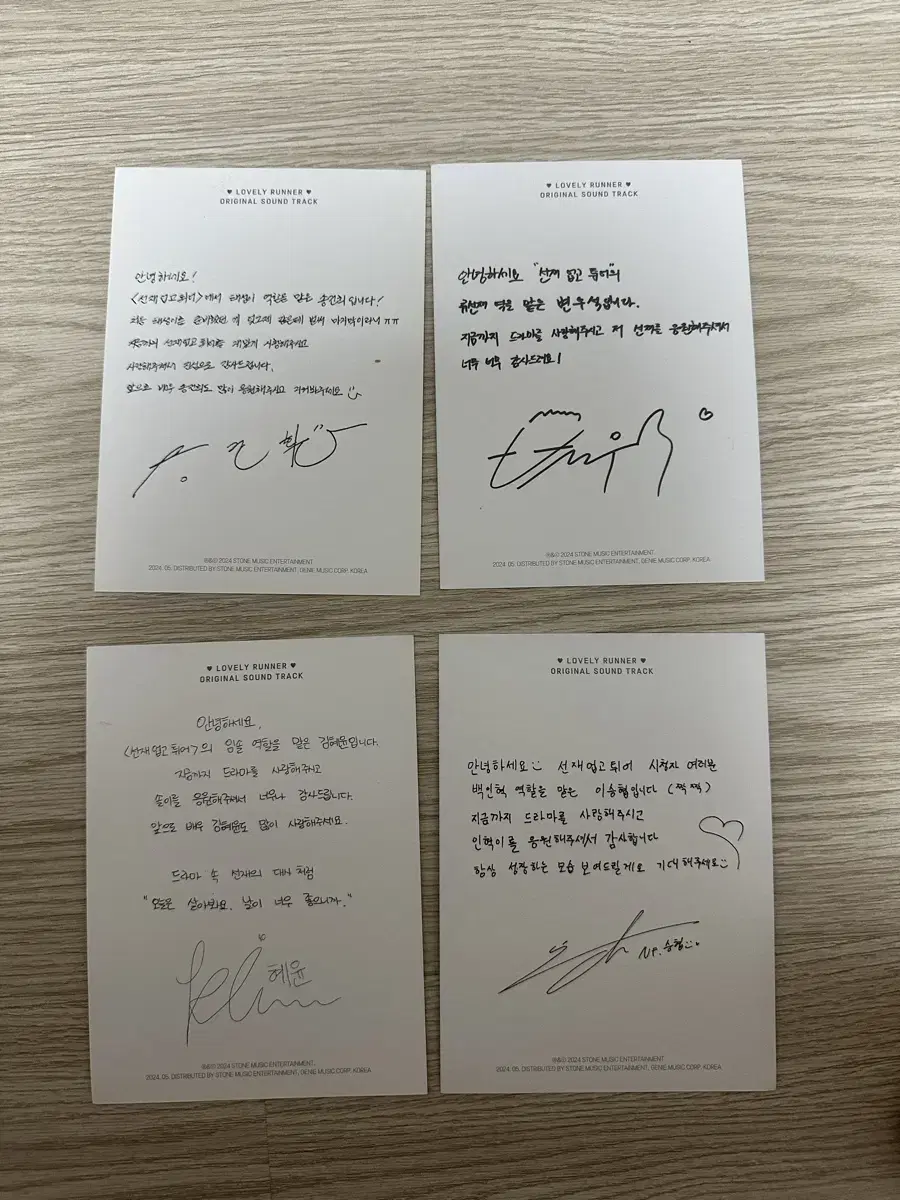 ♥ LOVELY RUNNER ♥
ORIGINAL SOUND TRACK
안녕하세요!
<선재업고튀어>에서 태성이 역할을 맡은 송건희입니다!
처음 태성이를 준비했던 게 엊그제 같은데 벌써 마지막이라니 ㅠㅠ
지금까지 선재업고튀어를 재밌게 시청해주시고
사랑해주셔서 진심으로 감사드립니다.
앞으로 배우 송건희도 많이 응원해주시고 지켜봐주세요
건희
℗&© 2024 STONE MUSIC ENTERTAINMENT.
2024. 05. DISTRIBUTED BY STONE MUSIC ENTERTAINMENT, GENIE MUSIC CORP. KOREA
♥ LOVELY RUNNER ♥
ORIGINAL SOUND TRACK
안녕하세요 "선재 업고 튀어"의
류선재 역을 맡은 변우석입니다.
지금까지 드라마를 사랑해주시고 저 선재를 응원해주셔서
너무 너무 감사드려요!
℗&© 2024 STONE MUSIC ENTERTAINMENT.
2024. 05. DISTRIBUTED BY STONE MUSIC ENTERTAINMENT, GENIE MUSIC CORP. KOREA
♥ LOVELY RUNNER ♥
ORIGINAL SOUND TRACK
안녕하세요.
<선재 업고 튀어>의 임솔 역할을 맡은 김혜윤입니다.
지금까지 드라마를 사랑해주시고
솔이를 응원해주셔서 너무나 감사드립니다.
앞으로 배우 김혜윤도 많이 사랑해주세요.
드라마 속 선재의 대사처럼
"오늘은 살아봐요. 날이 너무 좋으니까."
혜윤
℗&© 2024 STONE MUSIC ENTERTAINMENT.
2024. 05. DISTRIBUTED BY STONE MUSIC ENTERTAINMENT, GENIE MUSIC CORP. KOREA
♥ LOVELY RUNNER ♥
ORIGINAL SOUND TRACK
안녕하세요 선재업고튀어 시청자 여러분
백인혁 역할을 맡은 이승협입니다 (짝짝)
지금까지 드라마를 사랑해주시고
인혁이를 응원해주셔서 감사합니다
항상 성장하는 모습 보여드릴게요 기대해주세요
N.F. 승협
℗&© 2024 STONE MUSIC ENTERTAINMENT.
2024. 05. DISTRIBUTED BY STONE MUSIC ENTERTAINMENT, GENIE MUSIC CORP. KOREA